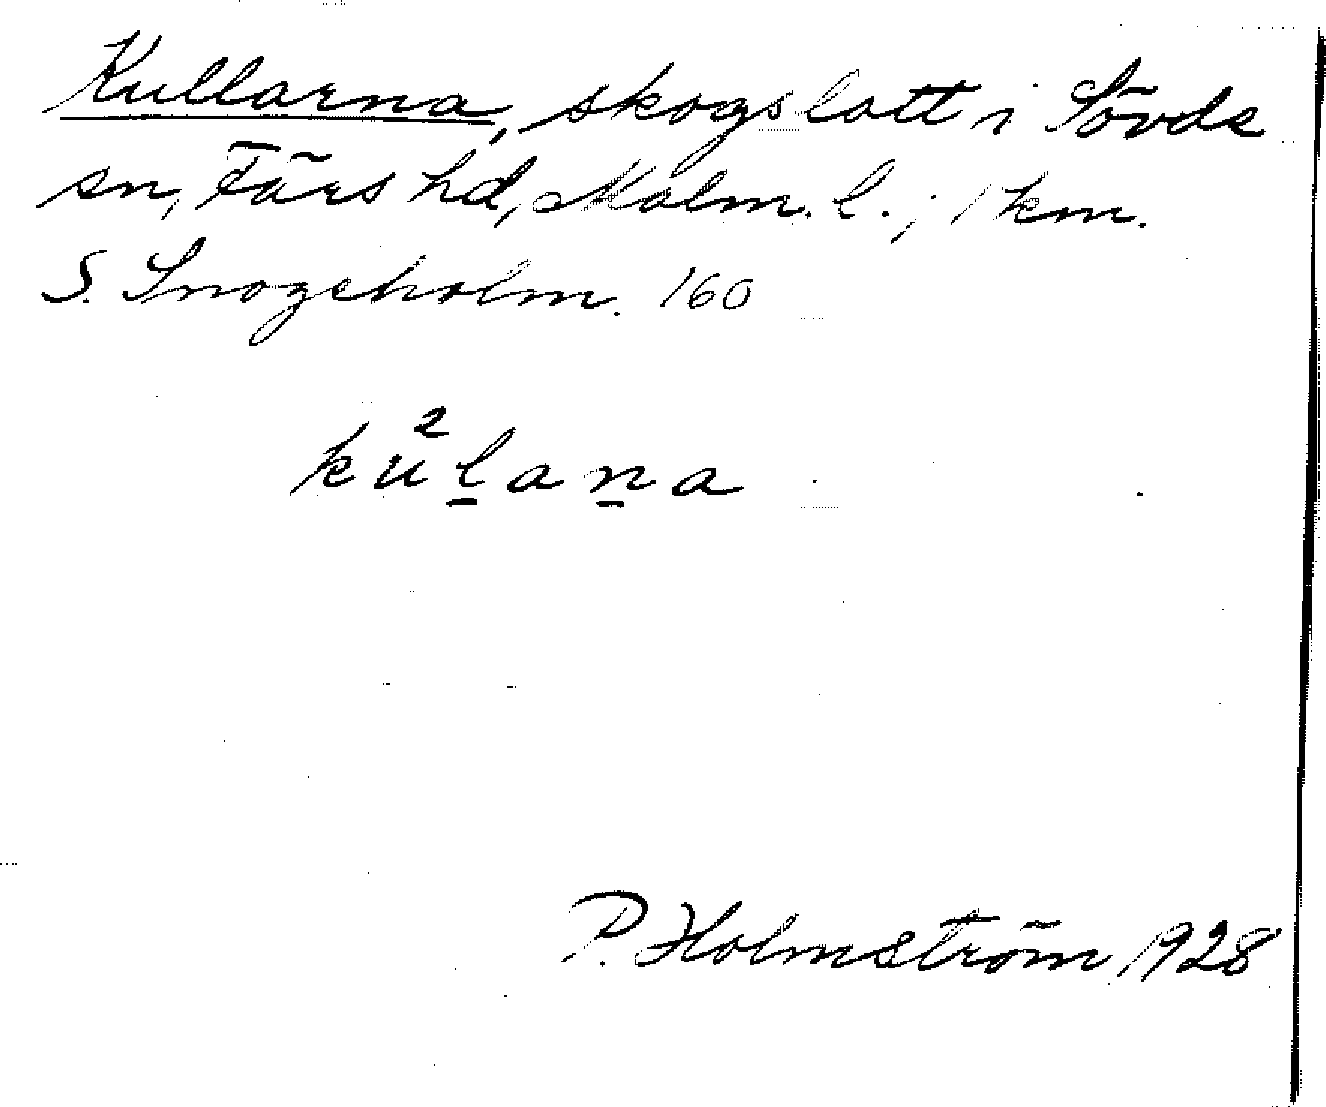 Kullarna, skogslott i Sövde
sn, Färs hd, Malm. l.; 1 km.
S. Snogeholm. 160
kų²l̲an̲a
P. Holmström 1928